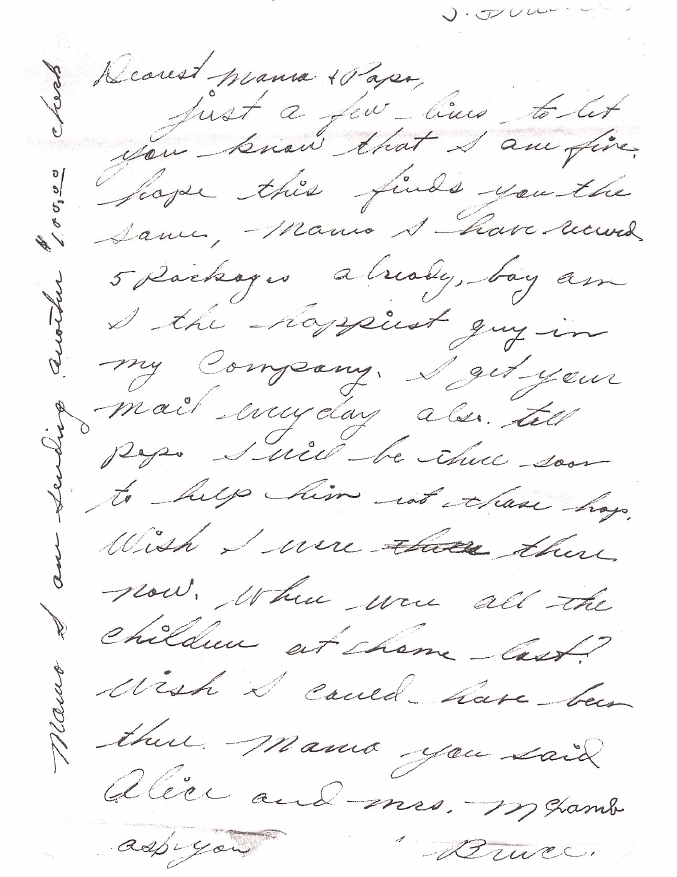 Dearest Mama & Papa,
Just a few lines to let
you know that I am fine.
hope this finds you the
same, Mama I have recived
5 Packages already, boy am
I the happiest guy in
my Company. I get your
mail everyday also. tell
Papa I will be there soon
to help him eat those hog.
Wish I were there
now. When were all the
children at home last?
Wish I could have been
there. Mama you said
Alice and Mrs. McLamb
ask you
Bruce.
Mama I am sending another $100.00 check